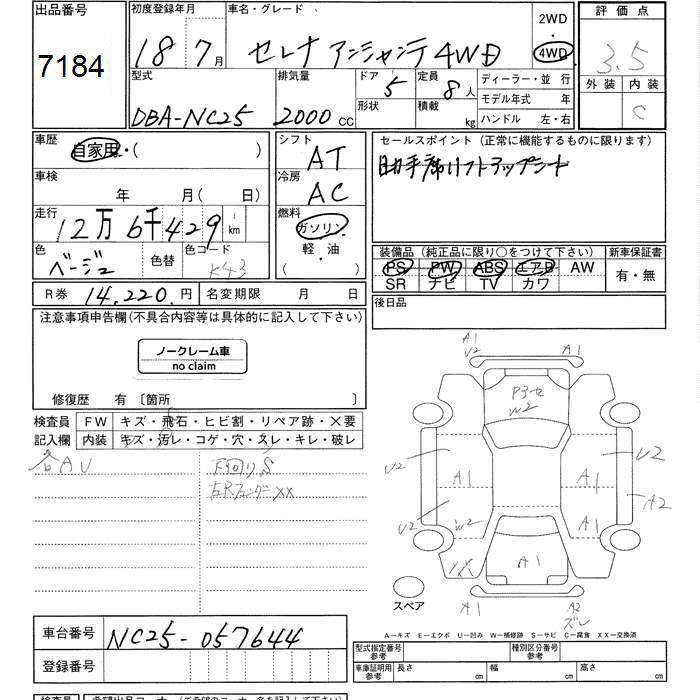 出品番号 初度登録年月 車名・グレード 2WD 評価点
7184 18 7月 セレナ アンシャンテ4WD 4WD 3.5
型式 排気量 ドア 定員 ディーラー・並行 外装 内装
DBA-NC25 2000cc 5 8人 モデル年式 年 C
形状 積載 kg ハンドル 左・右
車歴 自家用・( ) シフト AT セールスポイント (正常に機能するものに限ります)
助手席リフトアップシート
車検 年 月(日) 冷房 AC
走行 12万6千429 km 燃料 ガソリン
軽・油
( )
色 ベージュ 色替 色コード K43
装備品 (純正品に限り○をつけて下さい) 新車保証書
PS PW ABS エアB AW 有・無
SR ナビ TV カワ
R券 14,220.円 名変期限 月 日 後日品
注意事項申告欄(不具合内容等は具体的に記入して下さい)
ノークレーム車
no claim
修復歴 有 〔箇所 〕
検査員 FW キズ・飛石・ヒビ割・リペア跡・×要
記入欄 内装 キズ・汚レ・コゲ・穴・スレ・キレ・破レ
各AU 下回りS
右Rフェンダーxx
A1
U2 A1
Pスレ
W2
U2 A1 A1 U2
A2
U2 W2 A1
XX A1
A1 A2
ズレ
スペア
A-キズ E-エクボ U-凹み W-補修跡 S-サビ C-腐食 XX-交換済
車台番号 NC25-057644
型式指定番号 参考 種別区分番号 参考
登録番号
車庫証明用 参考 長さ cm 幅 cm 高さ cm